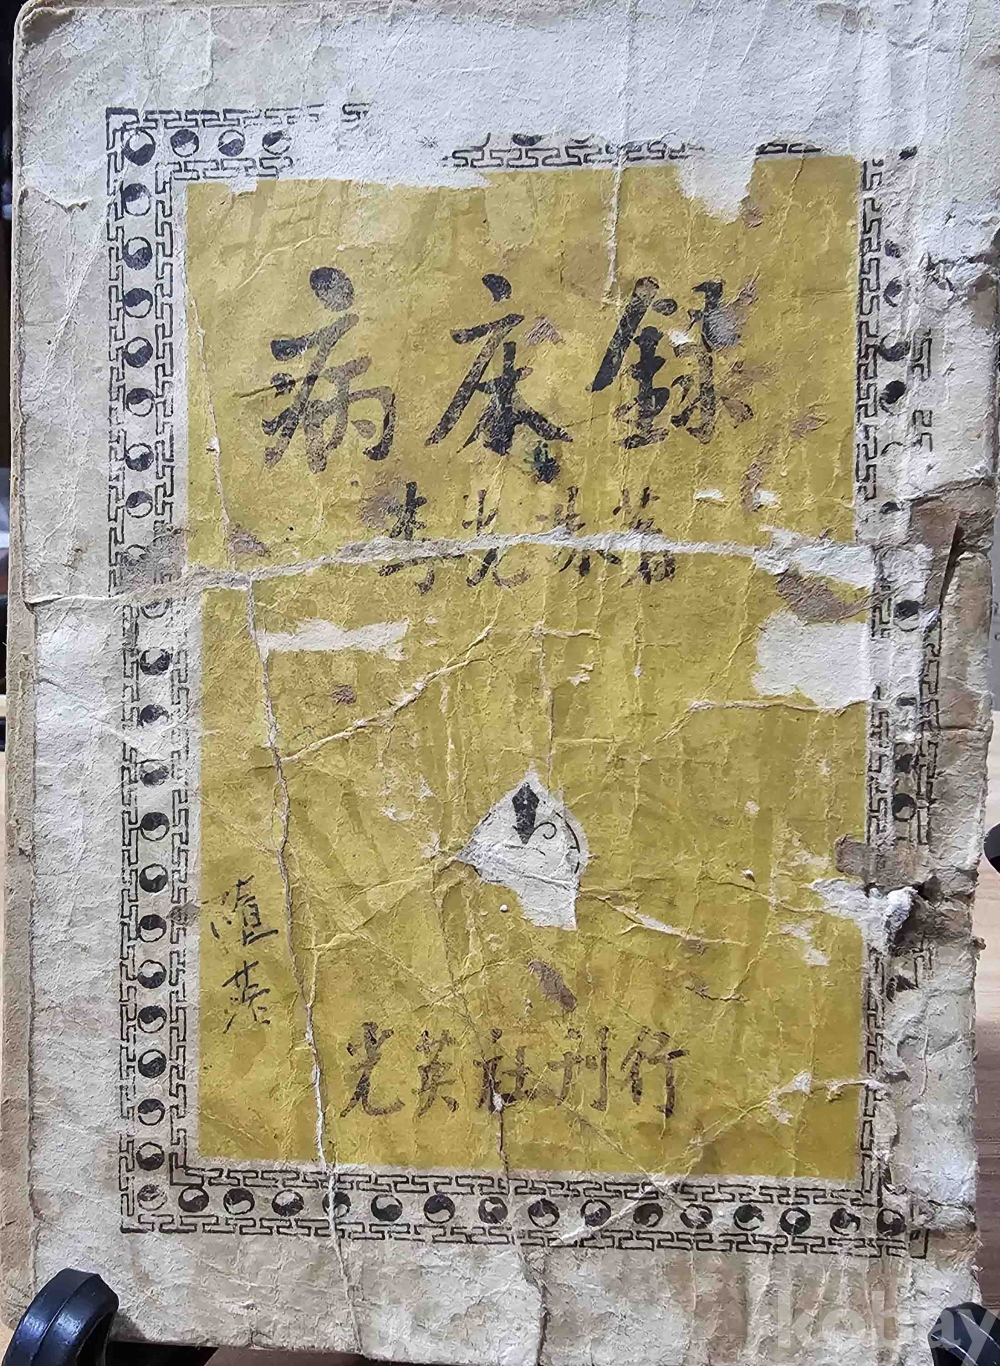 病床錄
李光著
光英社刊行
kobay